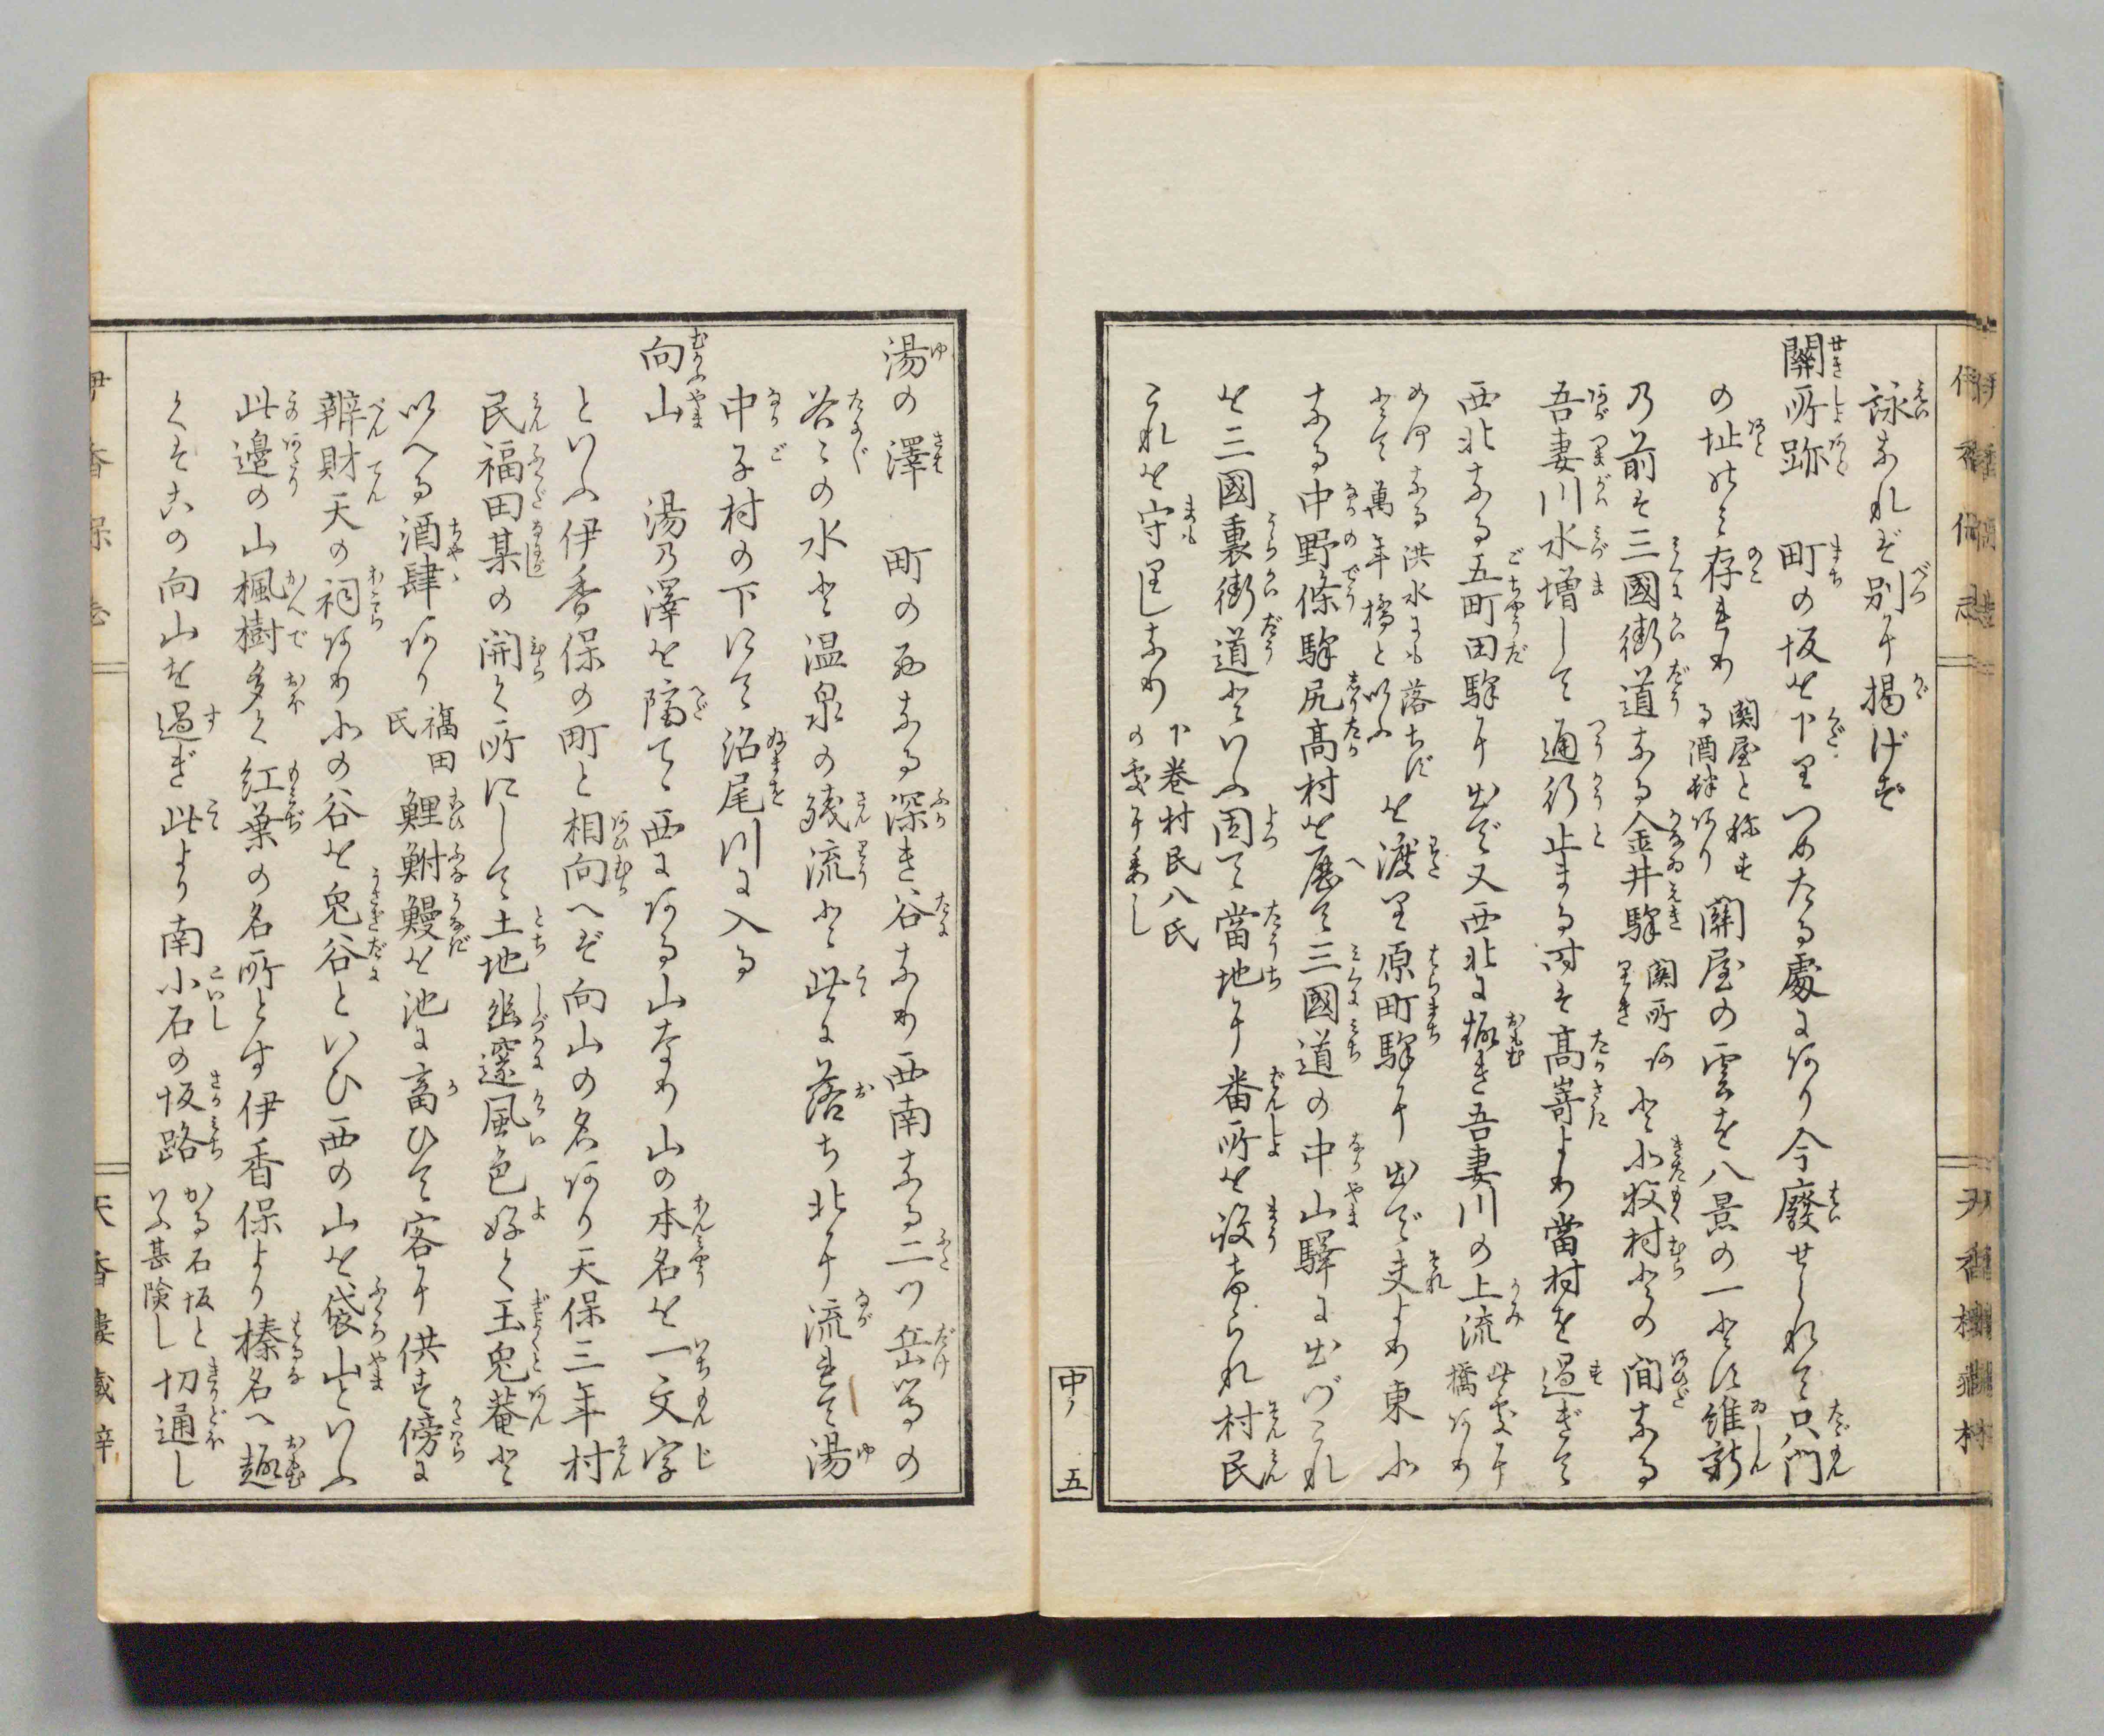 詠なれバ別に揭げず
關所跡 町の坂を下りつめたる處にあり今廢せられて只門
の址のミ存せり 関屋と称す
る酒肆あり 關屋の雲を八景の一とす維新
の前ハ三國街道なる金井驛 関所
と北牧村との間なる
吾妻川水増して通行止まる時ハ高崎より當村を過ぎて
西北なる五町田驛に出で又西北に趣き吾妻川の上流 此處に
橋あり
なる洪水にも落ちず
とて萬年橋と以ふ を渡り原町驛に出で夫より東北
なる中野條驛尻高村を歴て三國道の中山驛に出づこれ
を三國裏街道といふ因て當地に番所を設けられ村民
これを守りしなり 下巻村民八氏
の處に委し
中ノ 五
湯の澤 町の西なる深き谷なり西南なる二ツ岳等の
谷々の水と温泉の殘流と此に落ち北に流れて湯
中子村の下にて沼尾川に入る
向山 湯の澤を隔てゝ西にある山なり山の本名を一文字
といふ伊香保の町と相向へバ向山の名あり天保三年村
民福田某の開く所にして土地幽邃風色好く玉兎菴と
以へる酒肆あり 福田
氏 鯉鮒鰻を池に畜ひて客に供す傍に
辨財天の祠あり北の谷を兎谷といひ西の山を袋山といふ
此邉の山楓樹多く紅葉の名所とす伊香保より榛名へ趣
くそこの向山を過ぎ此より南小石の坂路 かる石坂と
いふ甚険し 切通し
伊香保志
天香樓藏梓